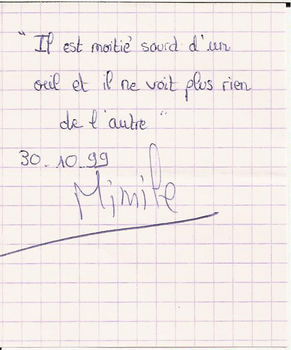 "Il est moitié sourd d'un
œil et il ne voit plus rien
de l'autre"
30.10.99
Mimile